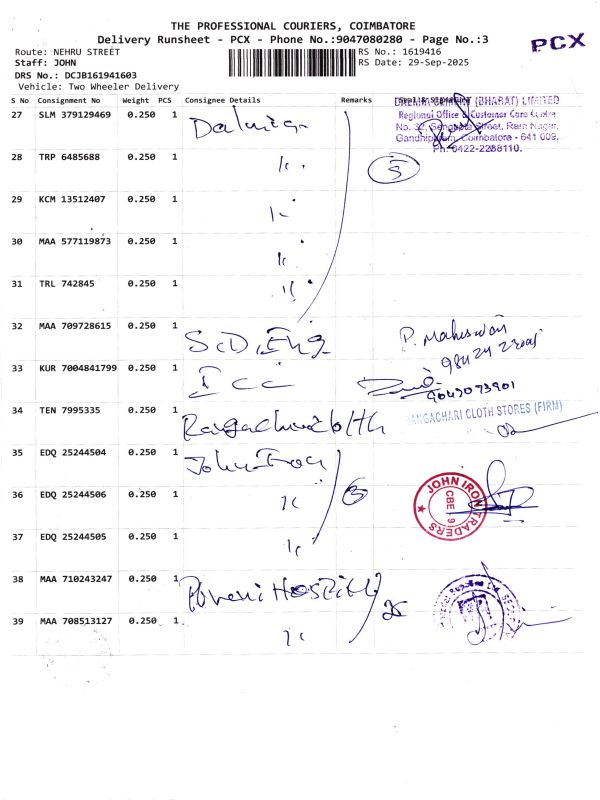 THE PROFESSIONAL COURIERS, COIMBATORE
Delivery Runsheet - PCX - Phone No.:9047080280 - Page No.:3
PCX
Route: NEHRU STREET
RS No.: 1619416
Staff: JOHN
RS Date: 29-Sep-2025
DRS No.: DCJB161941603
Vehicle: Two Wheeler Delivery
S No Consignment No Weight PCS Consignee Details Remarks
(BHARAT) LIMITED
Regional Office & Customer Care Centre
No. 32, Street, Ram Nagar,
Coimbatore - 641 009.
Ph: 0422-2288110.
27 SLM 379129469 0.250 1 Dalmia
28 TRP 6485688 0.250 1 5
29 KCM 13512407 0.250 1
30 MAA 577119873 0.250 1
31 TRL 742845 0.250 1
32 MAA 709728615 0.250 1 S.D. Eng P. Maheswari
33 KUR 7004841799 0.250 1 Icc
9043073901
34 TEN 7995335 0.250 1 RANGACHARI CLOTH STORES (FIRM)
35 EDQ 25244504 0.250 1 John Iron
36 EDQ 25244506 0.250 1 3
JOHN IRON TRADERS
CBE 9
37 EDQ 25244505 0.250 1
38 MAA 710243247 0.250 1
39 MAA 708513127 0.250 1